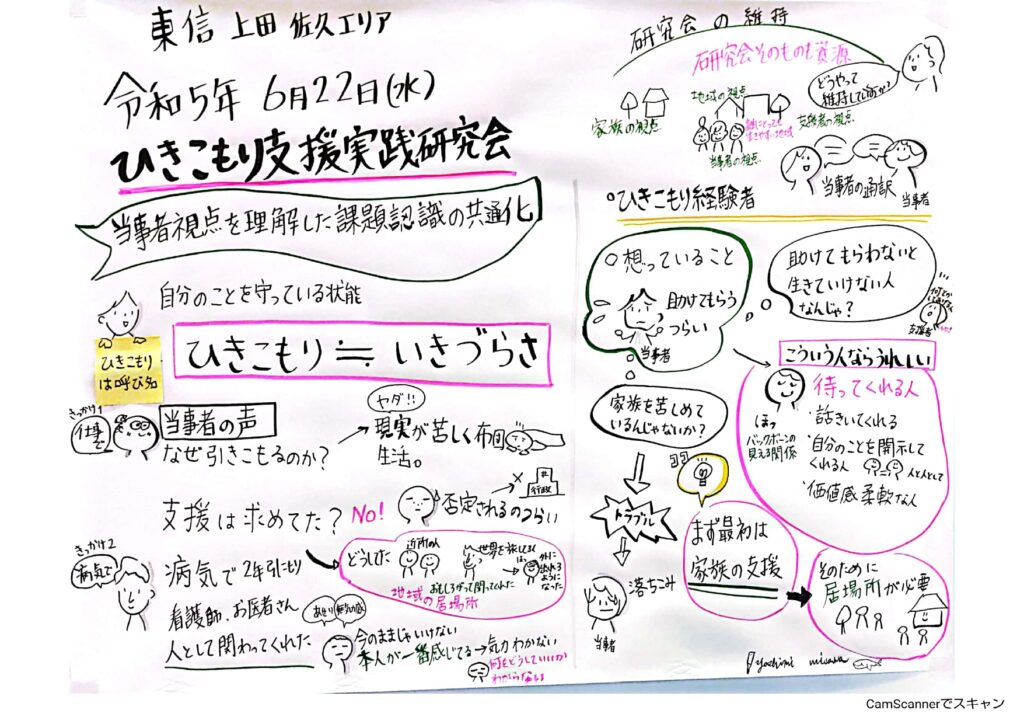 東信 上田 佐久エリア
令和5年 6月22日(水)
ひきこもり支援実践研究会
当事者視点を理解した課題認識の共通化
自分のことを守っている状態
ひきこもり
は呼び名
ひきこもり≒いきづらさ
きっかけ1
仕事で
当事者の声
なぜ引きこもるのか?
ヤダ!!
現実が苦しく布団
生活。
支援は求めてた? No!
否定されるのつらい
行政
きっかけ2
病気で
病気で2年引こもり
どうした
近所の人
おもしろがって関ってくれた
地域の居場所
世界を旅してる人
外に
出れる
ように
なった
看護師、お医者さん
人として関わってくれた
あせり
今のままじゃいけない
本人が一番感じてる→気力わかない
何をどうしていいか
わからない
研究会の維持
研究会そのものも資源
どうやって
維持していますか?
家族の視点
地域の視点
当事者の視点
誰にとっても
生きやすい地域
支援者の視点
当事者の通訳
当事者
ひきこもり経験者
想っていること
助けてもらう
つらい
当事者
助けてもらわないと
生きていけない人
なんじゃ?
支援者
家族を苦しめて
いるんじゃないか?
トラブル
落ちこみ
当事者
こういう人ならうれしい
待ってくれる人
・話きいてくれる
・自分のことを開示して
くれる人
人と人として
・価値感柔軟な人
ほっ
バックボーンの
見える関係
まず最初は
家族の支援
そのために
居場所が必要
yoshimi
CamScannerでスキャン